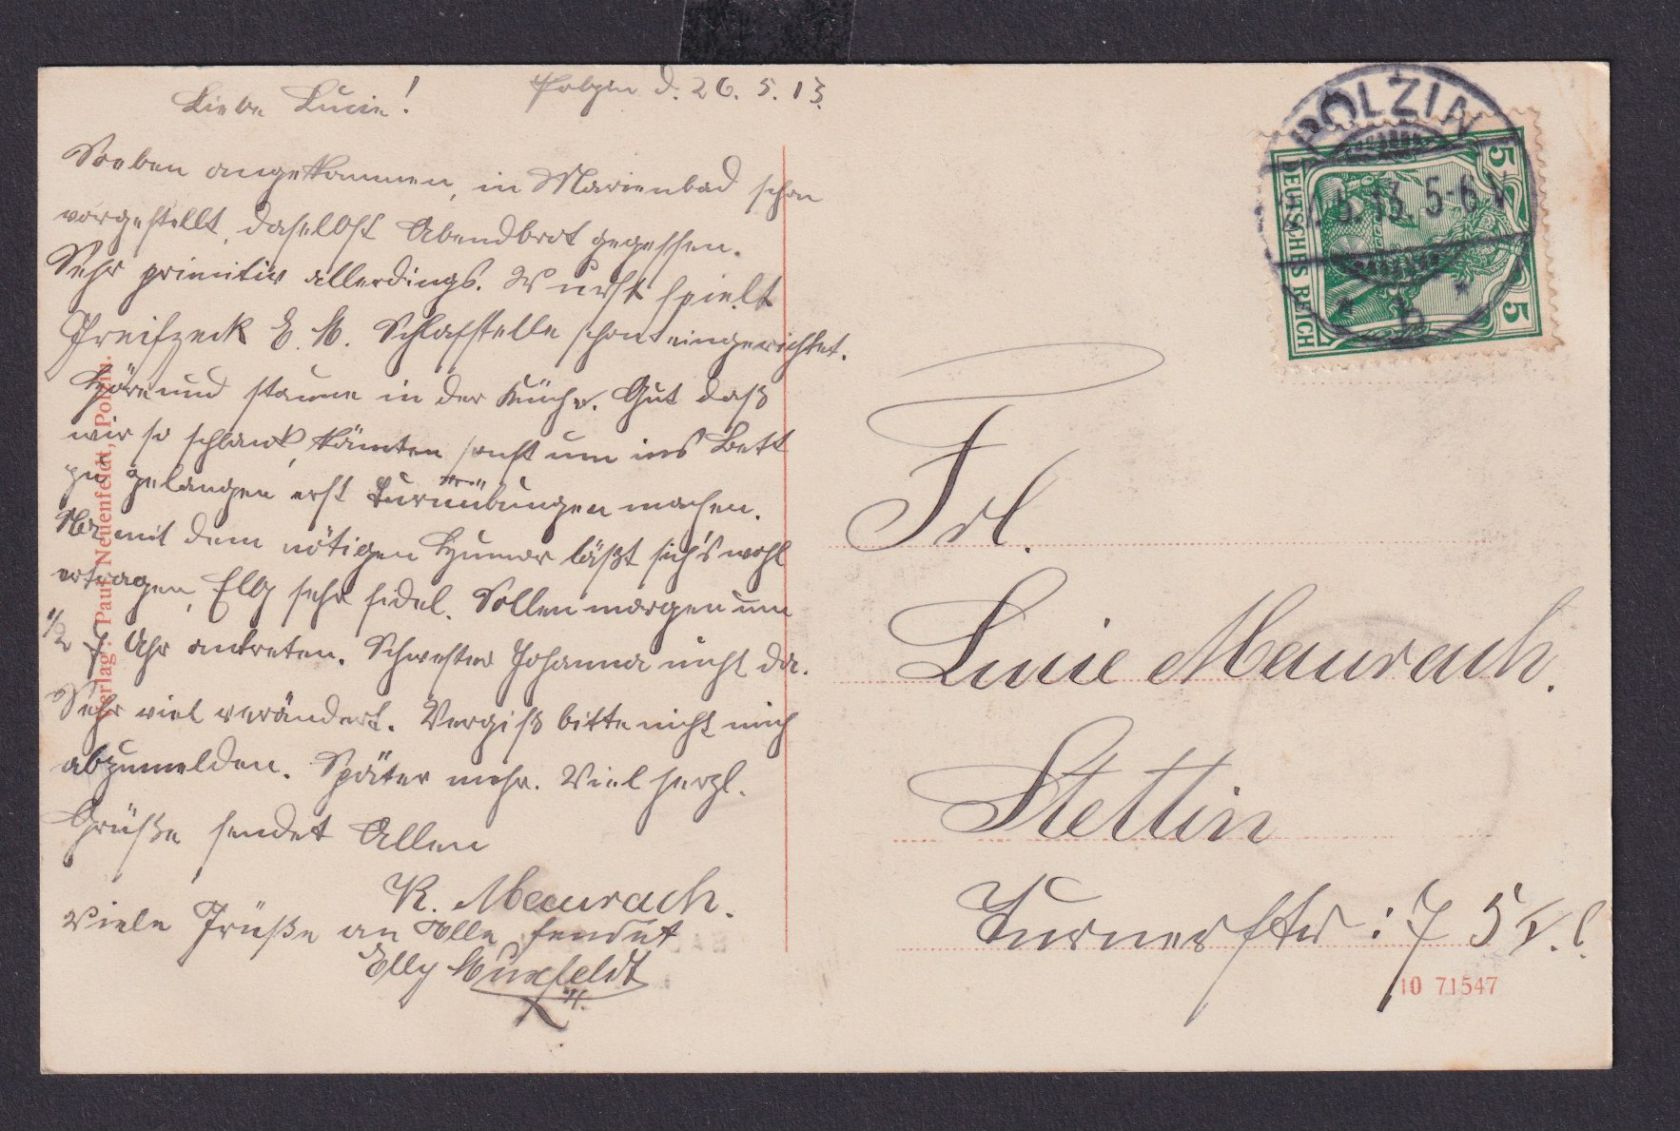 Polzin d. 26. 5. 13.
Liebe Lucie!
Soeben angekommen, in Marienbad schon
vorgestellt, daselbst Abendbrot gegessen.
Sehr primitiv allerdings. Wurst spielt
E. M. Schlafstelle schon eingerichtet.
Höre und staune in der Küche. Gut daß
wir so schlank, könnten sonst um ins Bett
zu gelangen erst Turnübungen machen.
Na mit dem nötigen Humor läßt sich's wohl
ertragen, Elly sehr fidel. Sollen morgen um
1/2 7 Uhr antreten. Schwester Johanna nicht da.
Sehr viel verändert. Vergiß bitte nicht mich
abzumelden. Später mehr. Viel herzl.
Grüße sendet Allen
K. Maurach.
Viele Grüße an Alle sendet
Elly
Verlag: Paul Neuenfeldt, Polzin.
POLZIN
5.13. 5-6 V
* b *
DEUTSCHES REICH
5 5
Frl.
Lucie Maurach.
Stettin
Turnerstr: 75
10 71547